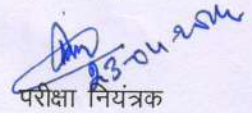 23-04-2014
परीक्षा नियंत्रक